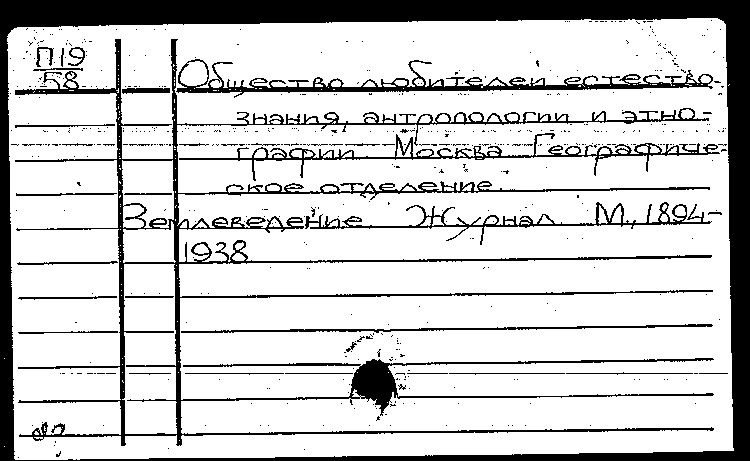 П19
58
Общество любителей естество-
знания, антропологии и этно-
графии. Москва. Географиче-
ское отделение.
Землеведение. Журнал. М., 1894-
1938